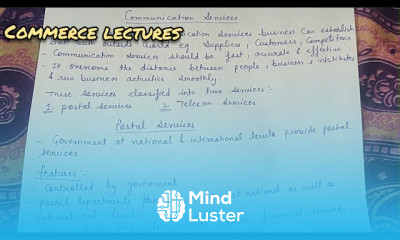 Communication Services
COMMERCE LECTURES
cation services business can establish
outside world eg Suppliers, Customers, Competitors
- Communication services should be fast, accurate & effective
- It overcome the distance between people, business & institutes
& run business activities smoothly.
These services classified into two services:-
1 postal services 2 Telecom services
Postal Services
- Government at national & international levels provide postal
services
features:-
- Controlled by government
- postal departments national as well as
international levels financial services
Mind
Luster